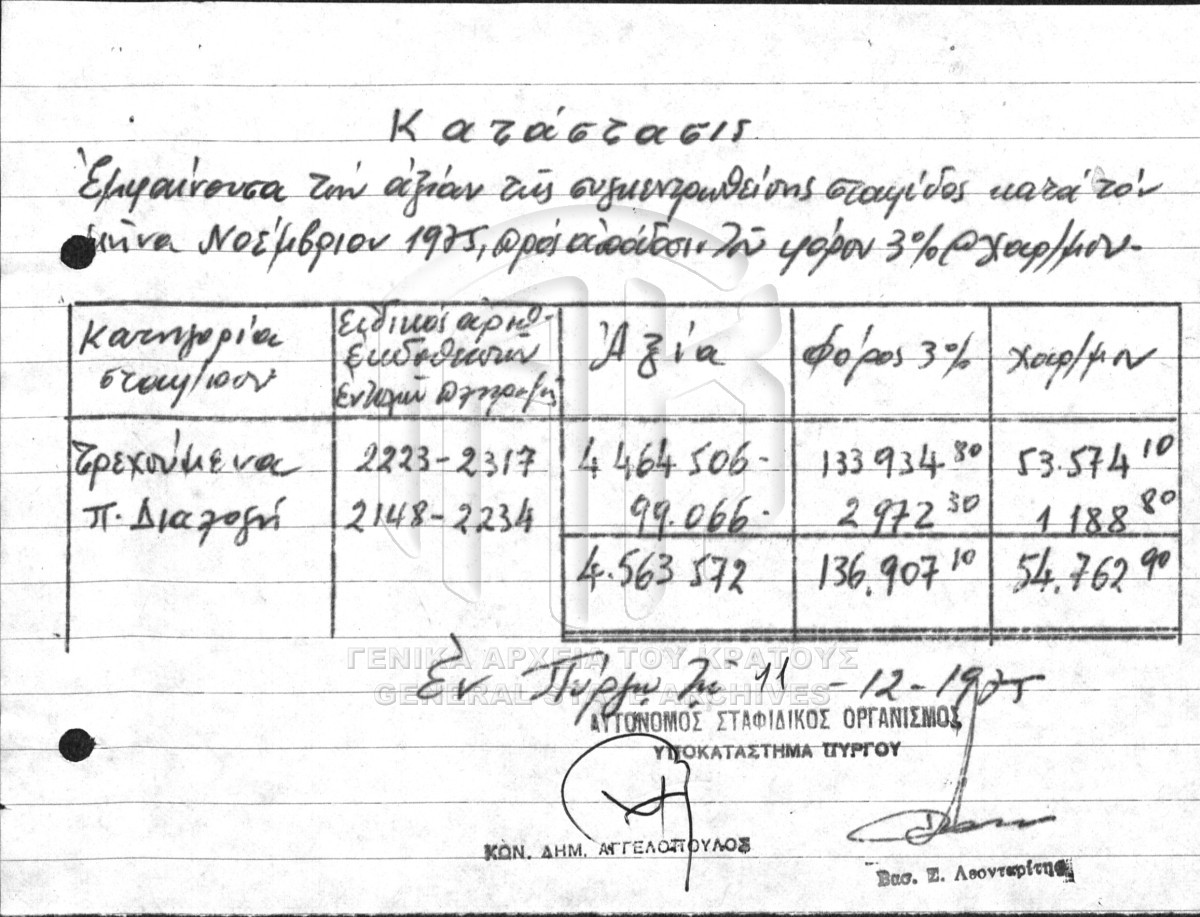 Κατάστασις
Ἐμφαίνουσα τήν ἀξίαν τῆς συγκεντρωθείσης σταφίδος κατά τόν
μῆνα Νοέμβριον 1975, πρός ἀπόδοσιν τοῦ φόρου 3% & χαρ/μου.-
Κατηγορία σταφ/μου Εἰδικός ἀριθ. ἐκδοθεισῶν ἐντολῶν πληρωμῆς Ἀξία Φόρος 3% χαρ/μου
Τρεχούμενα 2223-2317 4 464 506- 133 934 80 53.574 10
Π. Διαλογή 2148-2234 99.066- 2 972 30 1 188 80
4.563 572 136.907 10 54.762 90
ΓΕΝΙΚΑ ΑΡΧΕΙΑ ΤΟΥ ΚΡΑΤΟΥΣ
Ἐν Πύργῳ τῇ 11-12-1975
GENERAL STATE ARCHIVES
ΑΥΤΟΝΟΜΟΣ ΣΤΑΦΙΔΙΚΟΣ ΟΡΓΑΝΙΣΜΟΣ
ΥΠΟΚΑΤΑΣΤΗΜΑ ΠΥΡΓΟΥ
ΚΩΝ. ΔΗΜ. ΑΓΓΕΛΟΠΟΥΛΟΣ
Βασ. Σ. Λεονταρίτης